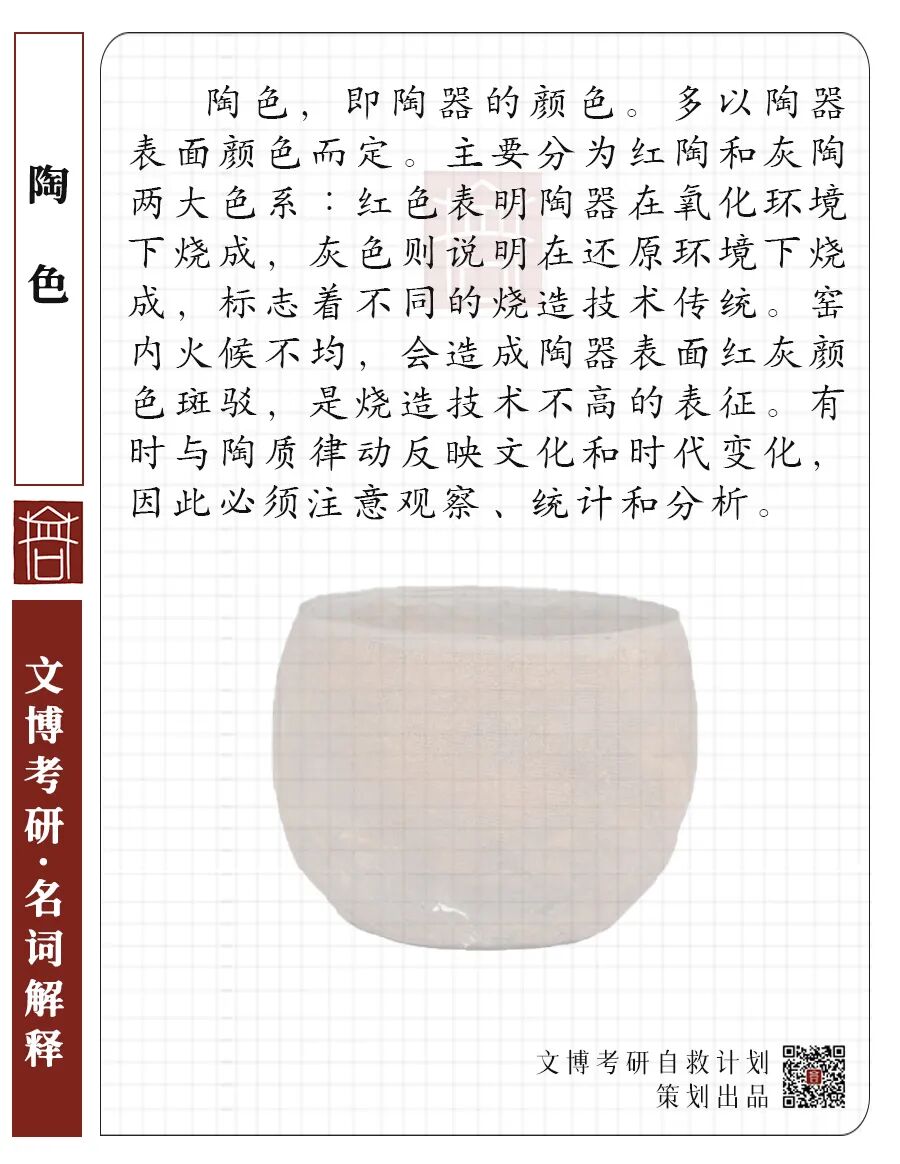 陶色
陶色，即陶器的颜色。多以陶器
表面颜色而定。主要分为红陶和灰陶
两大色系：红色表明陶器在氧化环境
下烧成，灰色则说明在还原环境下烧
成，标志着不同的烧造技术传统。窑
内火候不均，会造成陶器表面红灰颜
色斑驳，是烧造技术不高的表征。有
时与陶质律动反映文化和时代变化，
因此必须注意观察、统计和分析。
文博考研·名词解释
文博考研自救计划
策划出品